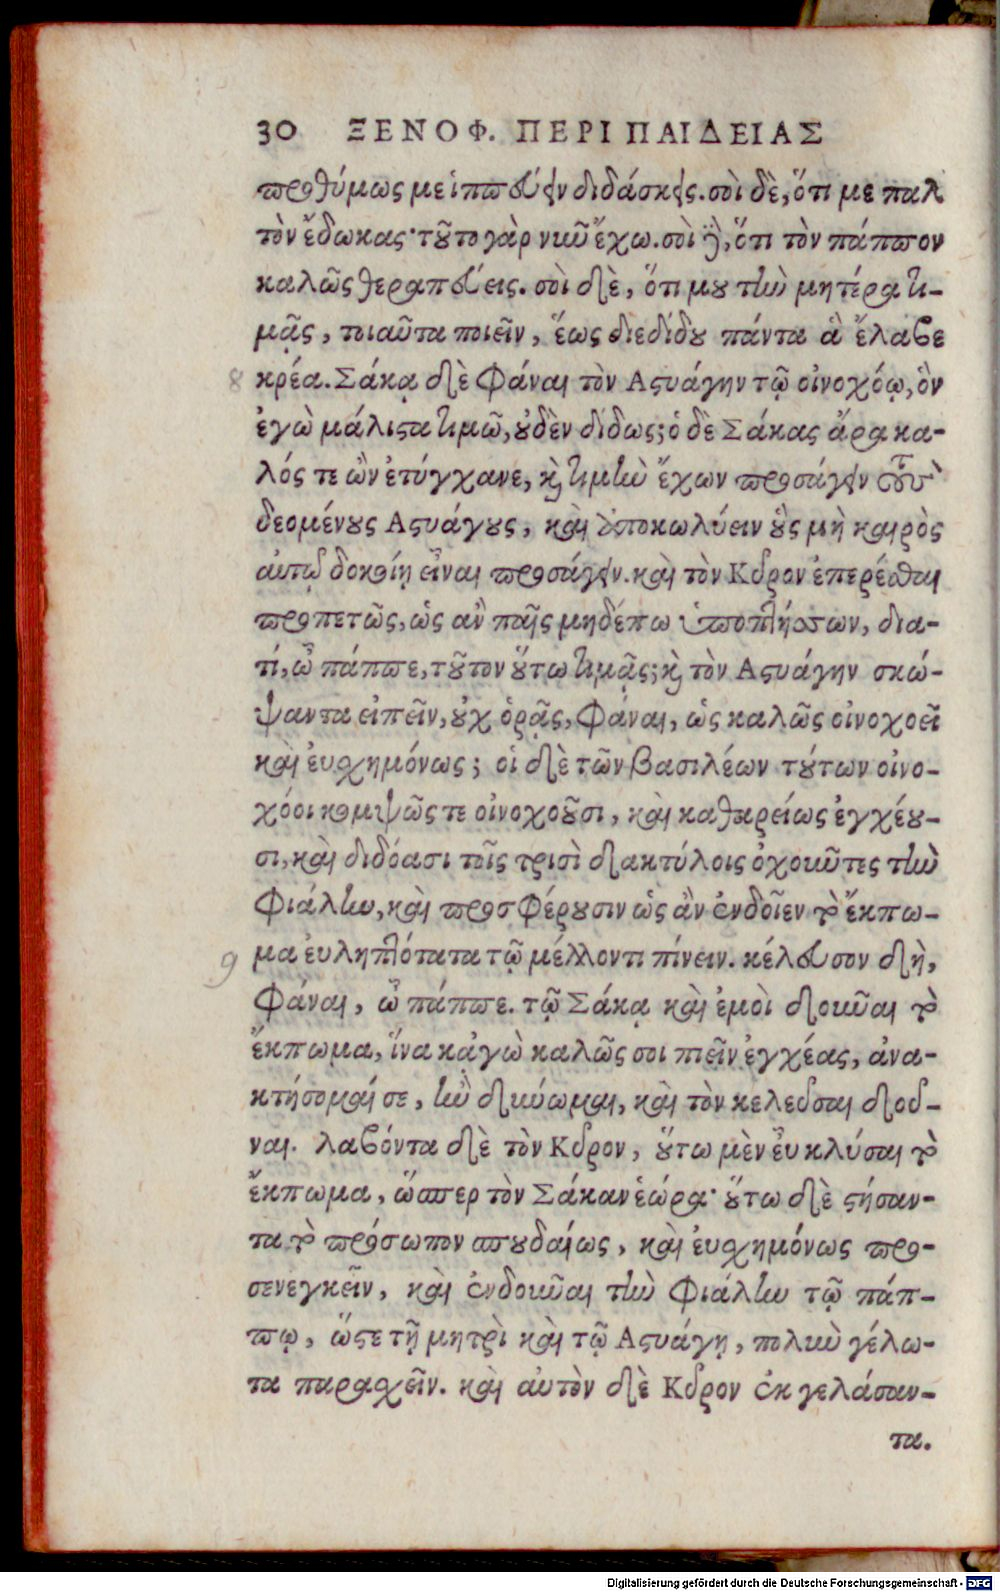 30 ΞΕΝΟΦ. ΠΕΡΙ ΠΑΙΔΕΙΑΣ
προθύμως με ἱππεύειν διδάσκεις. σοὶ δὲ, ὅτι με παλ
τὸν ἔδωκας· τοῦτο γὰρ νῦν ἔχω. σοὶ δ', ὅτι τὸν πάππον
καλῶς θεραπεύεις. σοὶ δὲ, ὅτι μου τὴν μητέρα τι-
μᾷς, τοιαῦτα ποιεῖν, ἕως διεδίδου πάντα ἃ ἔλαβε
8 κρέα. Σάκᾳ δὲ φάναι τὸν Αστυάγην τῷ οἰνοχόῳ, ὃν
ἐγὼ μάλιστα τιμῶ, οὐδὲν δίδως; ὁ δὲ Σάκας ἄρα κα-
λός τε ὢν ἐτύγχανε, καὶ τιμὴν ἔχων προσάγειν τοὺς
δεομένους Αστυάγους, καὶ ἀποκωλύειν οὓς μὴ καιρὸς
αὐτῷ δοκοίη εἶναι προσάγειν. καὶ τὸν Κῦρον ἐπερέσθαι
προπετῶς, ὡς ἂν παῖς μηδέπω ὑποπτήσσων, δια-
τί, ὦ πάππε, τοῦτον οὕτω τιμᾷς; καὶ τὸν Αστυάγην σκώ-
ψαντα εἰπεῖν, οὐχ ὁρᾷς, φάναι, ὡς καλῶς οἰνοχοεῖ
καὶ εὐσχημόνως; οἱ δὲ τῶν βασιλέων τούτων οἰνο-
χόοι κομψῶς τε οἰνοχοοῦσι, καὶ καθαρείως ἐγχέου-
σι, καὶ διδόασι τοῖς τρισὶ δακτύλοις ὀχοῦντες τὴν
φιάλην, καὶ προσφέρουσιν ὡς ἂν ἐνδοῖεν τὸ ἔκπω-
9 μα εὐληπτότατα τῷ μέλλοντι πίνειν. κέλευσον δὴ,
φάναι, ὦ πάππε. τῷ Σάκᾳ καὶ ἐμοὶ δοῦναι τὸ
ἔκπωμα, ἵνα κἀγὼ καλῶς σοι πιεῖν ἐγχέας, ἀνα-
κτήσομαί σε, ἢν δύνωμαι, καὶ τὸν κελεῦσαι δοῦ-
ναι. λαβόντα δὲ τὸν Κῦρον, οὕτω μὲν εὖ κλύσαι τὸ
ἔκπωμα, ὥσπερ τὸν Σάκαν ἑώρα· οὕτω δὲ στήσαν-
τα τὸ πρόσωπον σπουδαίως, καὶ εὐσχημόνως προ-
σενεγκεῖν, καὶ ἐνδοῦναι τὴν φιάλην τῷ πάπ-
πῳ, ὥστε τῇ μητρὶ καὶ τῷ Αστυάγῃ, πολὺν γέλω-
τα παρασχεῖν. καὶ αὐτὸν δὲ Κῦρον ἐκγελάσαν-
τα.
Digitalisierung gefördert durch die Deutsche Forschungsgemeinschaft - DFG